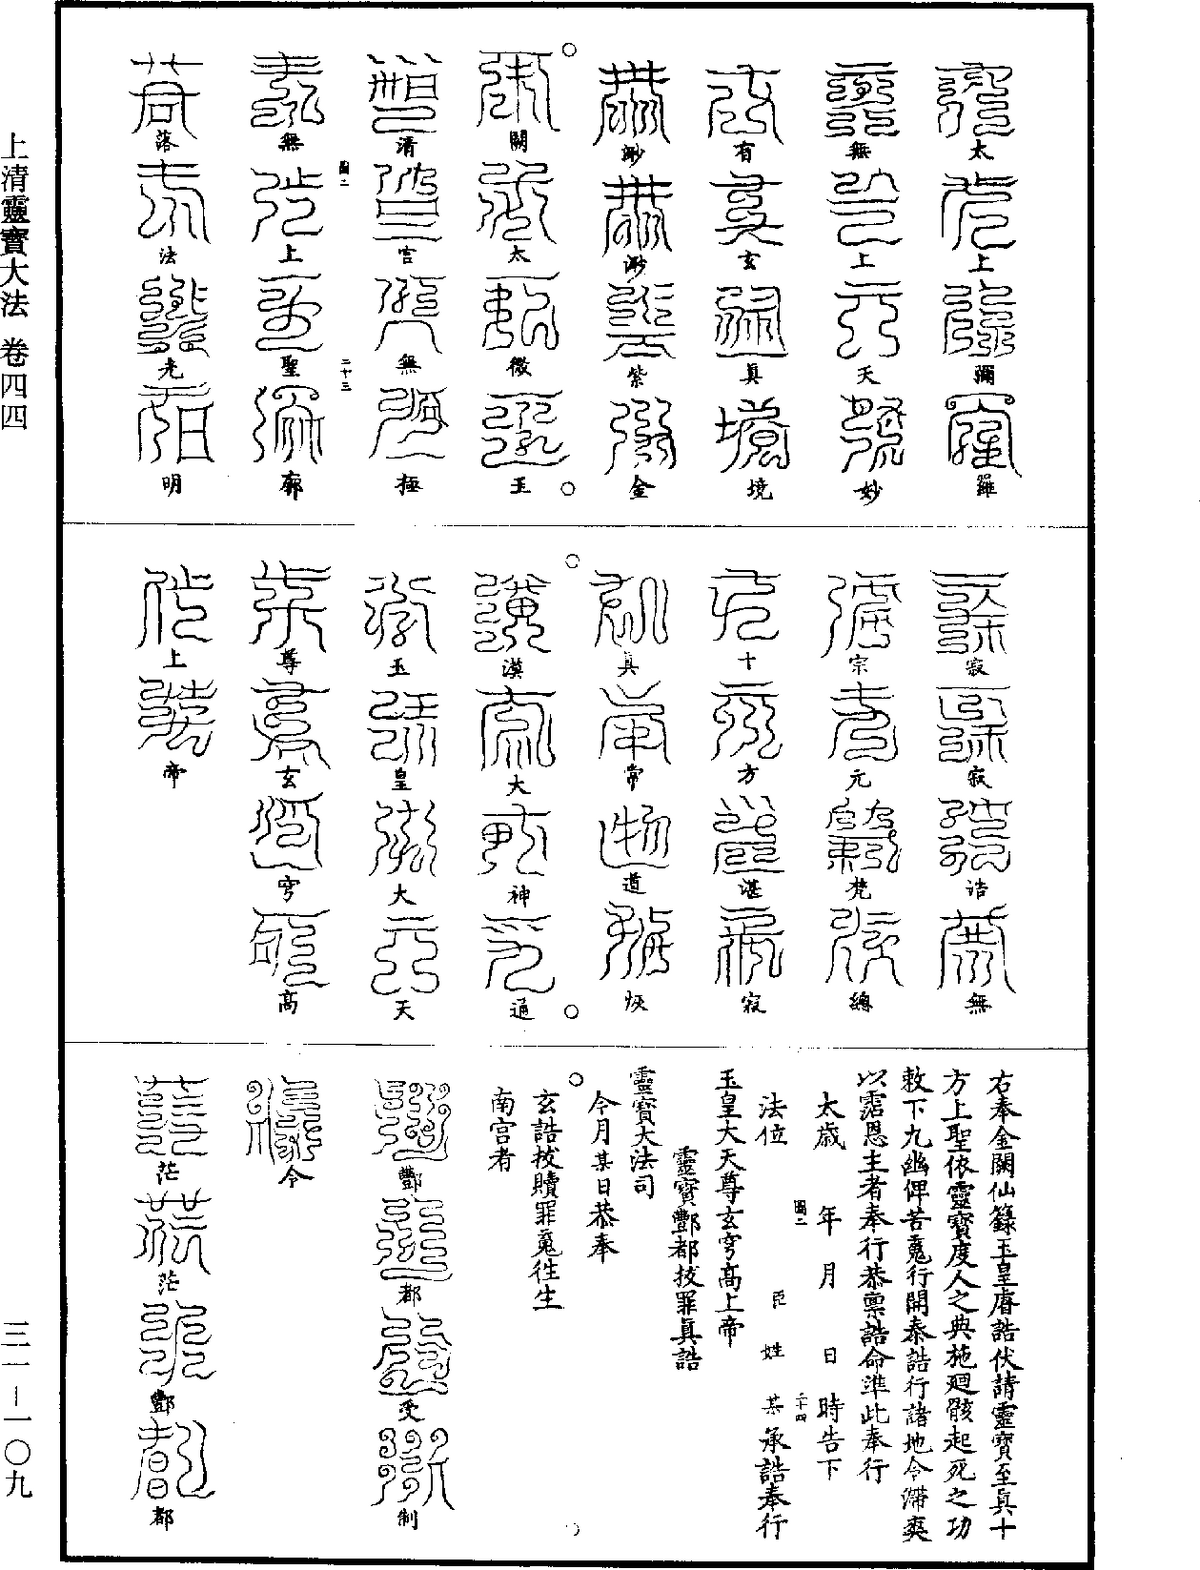 上清靈寶大法 卷四四
三一－一〇九
太上彌羅
無上天妙
有玄眞境
渺渺紫金
闕太微玉
清宮無極
無上聖廓
圖二 二十三
落法光明
寂寂浩無
宗元梵總
十方湛寂
真常道恢
漠大神通
玉皇大天
尊玄穹高
上帝
右奉金闕仙籙玉皇睿誥伏請靈寶至眞十
方上聖依靈寶度人之典施廻骸起死之功
敕下九幽俾苦䰟行開泰誥行諸地令滯爽
以霑恩主者奉行恭禀誥命準此奉行
太歲 年 月 日 時告下
圖二 二十四
法位 臣 姓 某 承誥奉行
玉皇大天尊玄穹高上帝
靈寶酆都拔罪眞誥
靈寶大法司
今月某日恭奉
玄誥拔贖罪䰟徃生
南宮者
酆都受制
今
茫茫酆都